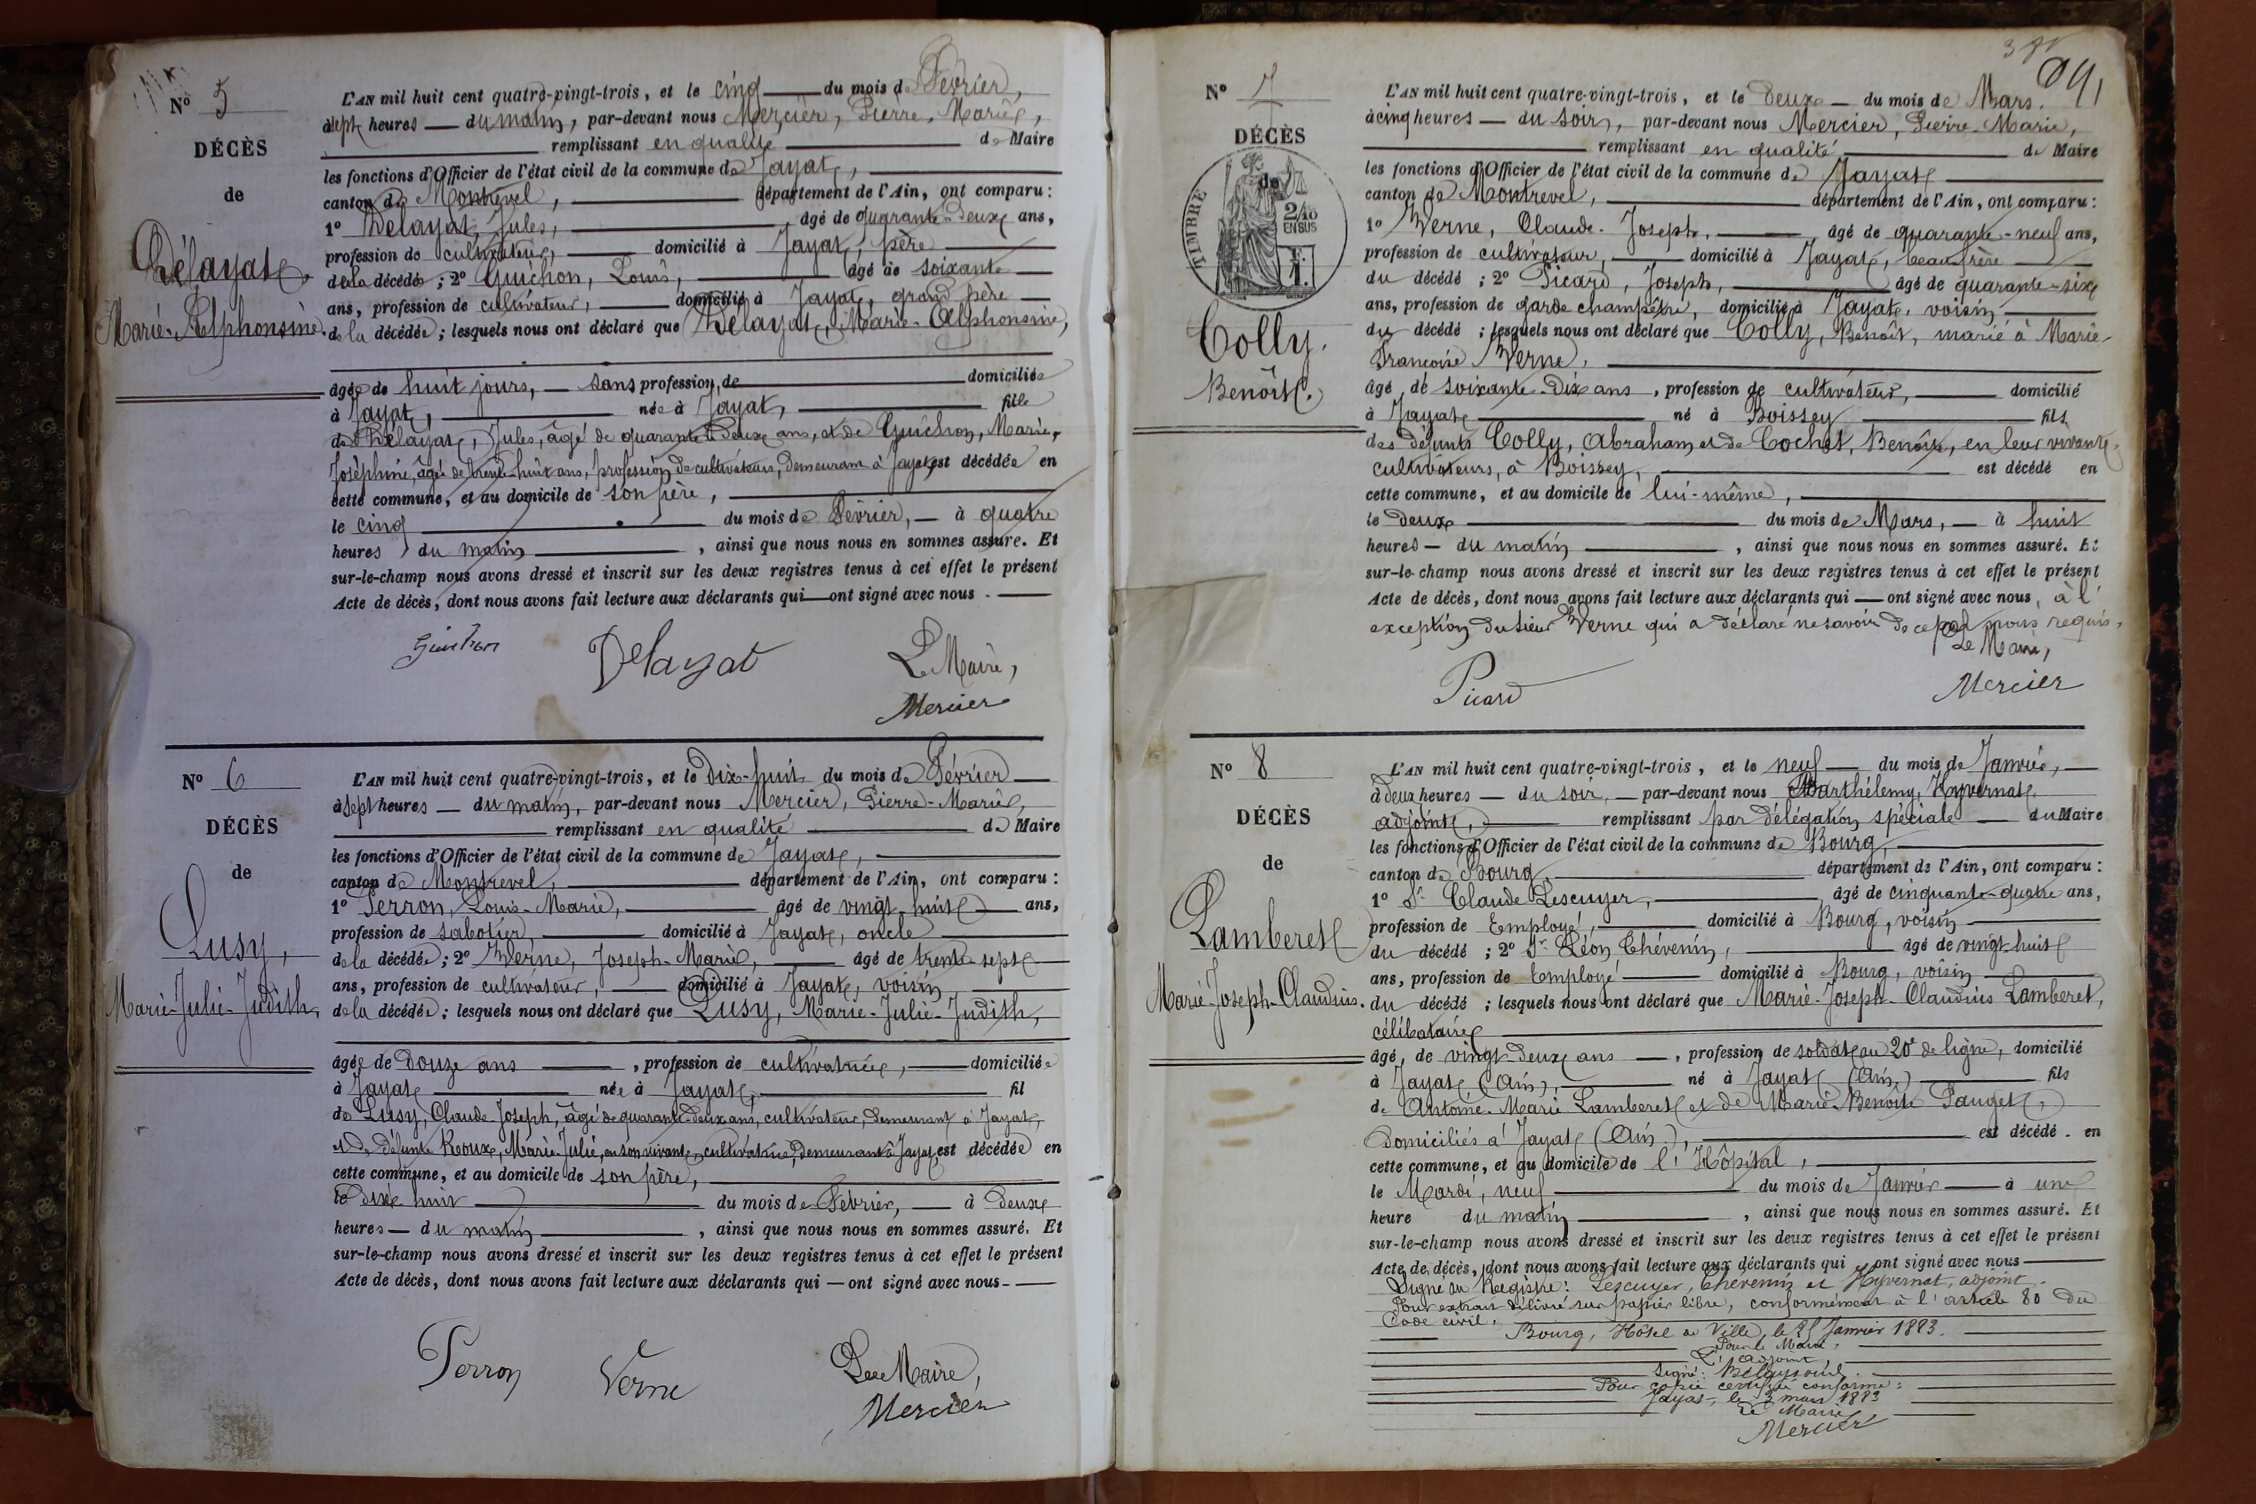 N° 5
DÉCÈS
de
Délayat
Marie-Alphonsine.
L'AN mil huit cent quatre-vingt-trois, et le cinq du mois de Février,
à sept heures du matin, par-devant nous Mercier, Pierre, Marie,
remplissant en qualité de Maire
les fonctions d'Officier de l'état civil de la commune de Jayat,
canton de Montrevel, département de l'Ain, ont comparu :
1° Délayat, Jules, âgé de quarante-deux ans,
profession de cultivateur, domicilié à Jayat, père
de la décédée ; 2° Guichon, Louis, âgé de soixante
ans, profession de cultivateur, domicilié à Jayat, grand père
de la décédée ; lesquels nous ont déclaré que Délayat, Marie-Alphonsine,
âgée de huit jours, sans profession, de domiciliée
à Jayat, née à Jayat, fille
de Délayat, Jules, âgé de quarante deux ans, et de Guichon, Marie,
Joséphine, âgée de trente-huit ans, profession de cultivateurs, demeurant à Jayat, est décédée en
cette commune, et au domicile de son père,
le cinq du mois de Février, à quatre
heures du matin, ainsi que nous nous en sommes assuré. Et
sur-le-champ nous avons dressé et inscrit sur les deux registres tenus à cet effet le présent
Acte de décès, dont nous avons fait lecture aux déclarants qui ont signé avec nous.
Guichon Delayat Le Maire,
Mercier
N° 6
DÉCÈS
de
Lusy,
Marie-Julie-Judith,
L'AN mil huit cent quatre-vingt-trois, et le Dix-huit du mois de Février
à sept heures du matin, par-devant nous Mercier, Pierre-Marie,
remplissant en qualité de Maire
les fonctions d'Officier de l'état civil de la commune de Jayat,
canton de Montrevel, département de l'Ain, ont comparu :
1° Perron, Louis-Marie, âgé de vingt-huit ans,
profession de sabotier, domicilié à Jayat, oncle
de la décédée ; 2° Verne, Joseph-Marie, âgé de trente-sept
ans, profession de cultivateur, domicilié à Jayat, voisin
de la décédée ; lesquels nous ont déclaré que Lusy, Marie-Julie-Judith,
âgée de douze ans, profession de cultivatrice, domiciliée
à Jayat née à Jayat, fil
de Lusy, Claude Joseph, âgé de quarante-deux ans, cultivateur, demeurant à Jayat,
et de défunte Roux, Marie-Julie, en son vivant, cultivatrice, demeurant à Jayat, est décédée en
cette commune, et au domicile de son père,
le dix huit du mois de Février, à deux
heures du matin, ainsi que nous nous en sommes assuré. Et
sur-le-champ nous avons dressé et inscrit sur les deux registres tenus à cet effet le présent
Acte de décès, dont nous avons fait lecture aux déclarants qui ont signé avec nous.
Perron Verne Le Maire,
Mercier
N° 7
DÉCÈS
de
TIMBRE
2/10
EN SUS
Colly.
Benoît.
L'AN mil huit cent quatre-vingt-trois, et le Deux du mois de Mars.
à cinq heures du soir, par-devant nous Mercier, Pierre-Marie,
remplissant en qualité de Maire
les fonctions d'Officier de l'état civil de la commune de Jayat
canton de Montrevel, département de l'Ain, ont comparu :
1° Verne, Claude-Joseph, âgé de quarante-neuf ans,
profession de cultivateur, domicilié à Jayat, beau frère
du décédé ; 2° Picard, Joseph, âgé de quarante-six
ans, profession de garde champêtre, domicilié à Jayat, voisin
du décédé ; lesquels nous ont déclaré que Colly, Benoît, marié à Marie-
Françoise Verne,
âgé, de soixante-dix ans, profession de cultivateur, domicilié
à Jayat né à Boissey fils
des défunts Colly, Abraham et de Cochet, Benoîte, en leur vivant
cultivateurs, à Boissey, est décédé en
cette commune, et au domicile de lui-même,
le deux du mois de Mars, à huit
heures du matin, ainsi que nous nous en sommes assuré. Et
sur-le-champ nous avons dressé et inscrit sur les deux registres tenus à cet effet le présent
Acte de décès, dont nous avons fait lecture aux déclarants qui ont signé avec nous, à l'
exception du sieur Verne qui a déclaré ne savoir de ce par nous requis.
Le Maire,
Picard Mercier
N° 8
DÉCÈS
de
Lamberet
Marie-Joseph-Claudius.
L'AN mil huit cent quatre-vingt-trois, et le neuf du mois de Janvier,
à deux heures du soir, par-devant nous Barthélemy, Hyvernat,
adjoint, remplissant par délégation spéciale du Maire
les fonctions d'Officier de l'état civil de la commune de Bourg,
canton de Bourg, département de l'Ain, ont comparu :
1° Sr Claude Lescuyer, âgé de cinquante-quatre ans,
profession de Employé, domicilié à Bourg, voisin
du décédé ; 2° Sr Léon Chévenin, âgé de vingt huit
ans, profession de Employé domicilié à Bourg, voisin
du décédé ; lesquels nous ont déclaré que Marie-Joseph-Claudius Lamberet,
célibataire
âgé, de vingt-deux ans, profession de soldat au 20e de ligne, domicilié
à Jayat (Ain), né à Jayat (Ain) fils
de Antoine-Marie Lamberet et de Marie-Benoîte Pauget,
domiciliés à Jayat (Ain), est décédé en
cette commune, et au domicile de l'Hôpital,
le Mardi, neuf du mois de Janvier à une
heure du matin, ainsi que nous nous en sommes assuré. Et
sur-le-champ nous avons dressé et inscrit sur les deux registres tenus à cet effet le présent
Acte de décès, dont nous avons fait lecture aux déclarants qui ont signé avec nous
Signé au Registre : Lescuyer, Chévenin et Hyvernat, adjoint.
Pour extrait délivré sur papier libre, conformément à l'article 80 du
Code civil.
Bourg, Hôtel de Ville, le Janvier 1883.
Pour le Maire,
L'adjoint
Signé :
Pour copie certifiée conforme :
Jayat, le 3 mars 1883
Le Maire
Mercier